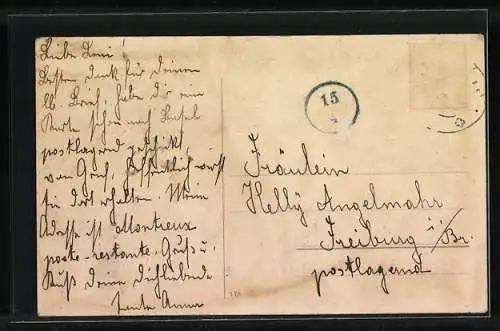 Liebe Leni!
Besten Dank für Deinen
lb. Brief, habe dir eine
Karte schon nach Basel
postlagernd geschickt,
von Genf, hoffentlich wirst
sie dort erhalten. Meine
Adresse ist Montreux
poste-restante. Gruß u.
Kuß Deine Dichliebende
Tante Anna
15
Fräulein
Helly Angelmahr
Freiburg i/Br.
postlagernd